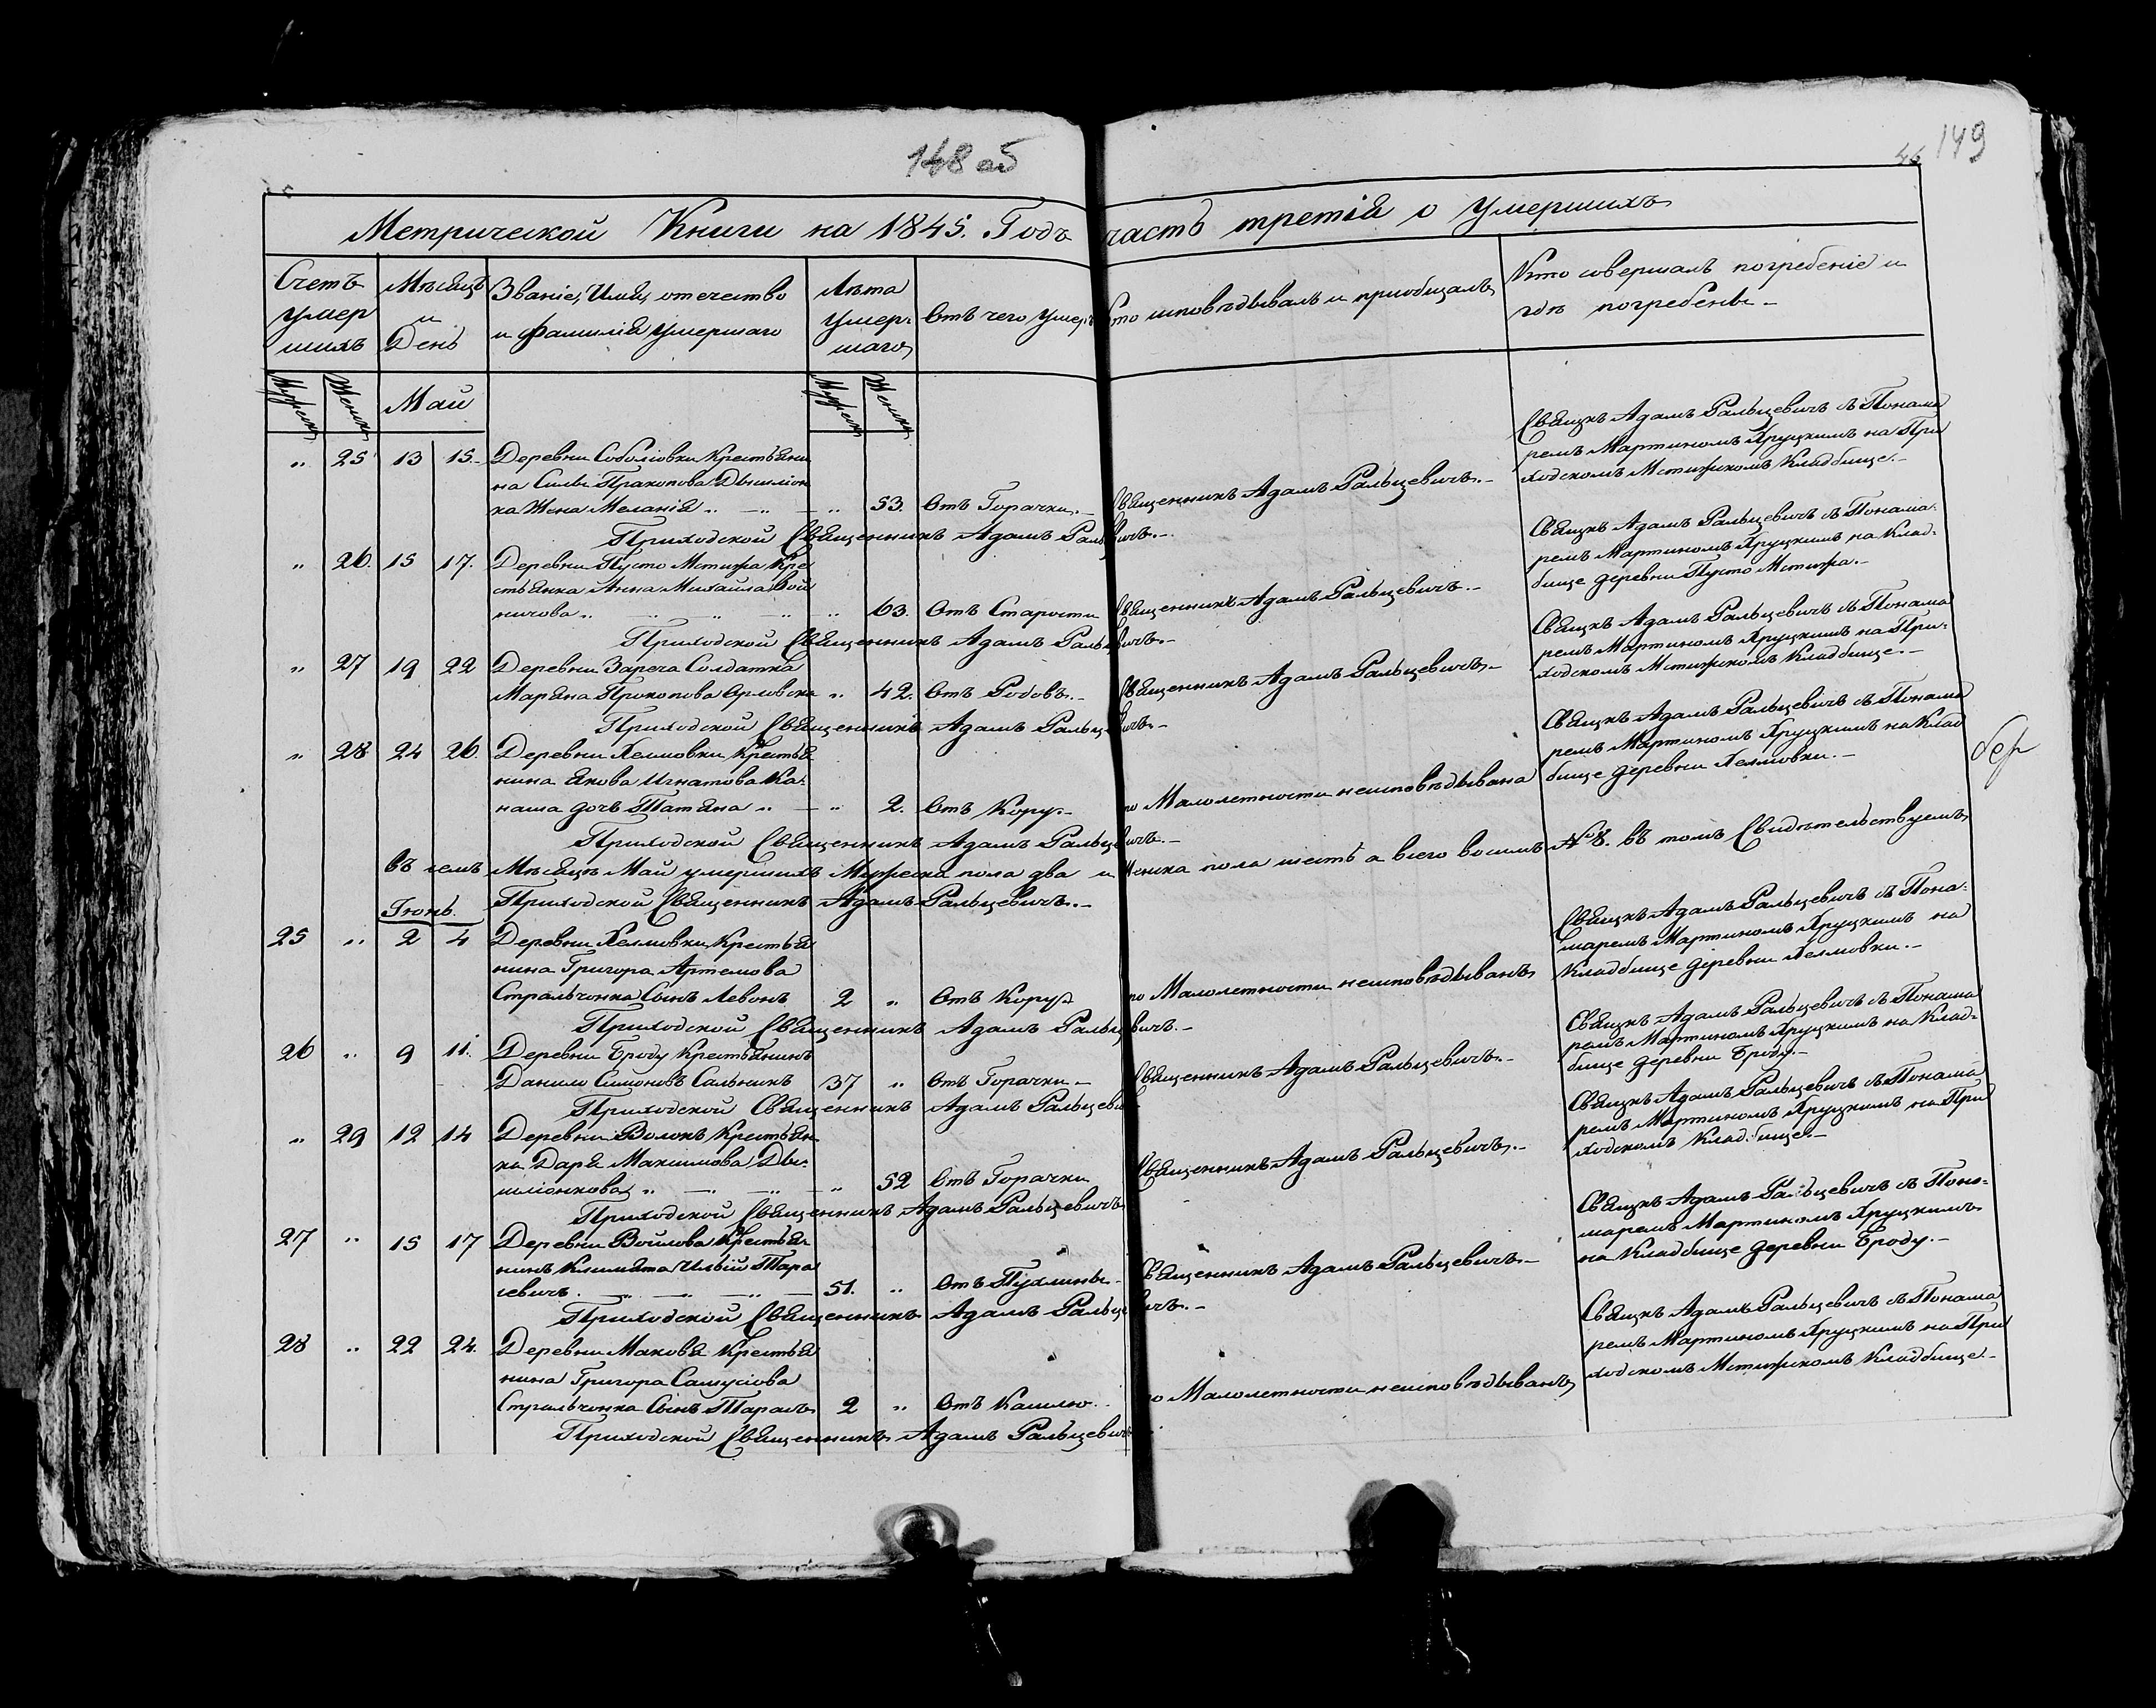 148 об
46 149
Метрической Книги на 1845. Годъ часть третія о умершихъ
Счетъ умершихъ
Мѣсяцъ и День
Званіе, Имя, отчество и фамилія умершаго
Лѣта умершаго
Отъ чего умеръ
Кто исповѣдывалъ и приобщалъ
Кто совершалъ погребеніе и гдѣ погребены -
Мужеска Женска Май Мужеска Женска
„ 25 13 15. Деревни Соболіовки Крестьяни
на Силы Пракопова Дышліон
ка Жена Меланія „ — „ — „ 53. Отъ Горачки. - Священникъ Адамъ Ральцевичъ. -
Свящнкъ Адамъ Ральцевичъ съ Понама
ремъ Мартиномъ Хруцкимъ на При
ходскомъ Мстижскомъ Кладбище. -
Приходской Священникъ Адамъ Ральцевичъ. -
„ 26. 15 17. Деревни Пусто Мстижа Кре
стьянка Анна Михайлова Вой
ничова „ „ „ 63. Отъ Старости Священникъ Адамъ Ральцевичъ. -
Свящнкъ Адамъ Ральцевичъ съ Понама-
ремъ Мартиномъ Хруцкимъ на Клад-
бище деревни Пусто Мстижа. -
Приходской Священникъ Адамъ Ральцевичъ. -
„ 27 19 22 Деревни Зареча Солдатка
Маряна Прокопова Орловска „ 42. Отъ Родовъ. - Священникъ Адамъ Ральцевичъ. -
Свящнкъ Адамъ Ральцевичъ съ Понама
ремъ Мартиномъ Хруцкимъ на При-
ходскомъ Мстижскомъ Кладбище. -
Приходской Священникъ Адамъ Ральцевичъ. -
„ 28 24 26. Деревни Хелмовки Крестья
нина Якова Игнатова Ка-
наша дочъ Татяна „ — „ 2. Отъ Кору. - по Малолетности неисповѣдывана
Свящнкъ Адамъ Ральцевичъ съ Понама
ремъ Мартиномъ Хруцкимъ на Клад
бище деревни Хелмовки. -
Приходской Священникъ Адамъ Ральцевичъ. -
въ семъ Мѣсяцѣ Май умершихъ Мужеска пола два и Женска пола шесть а всего восимъ № 8. въ томъ Свидѣтельствуемъ
Приходской Священникъ Адамъ Ральцевичъ. -
Іюнь.
25 „ 2 4 Деревни Хелмовки Крестья
нина Григора Артемова
Стральчонка Сынъ Левонъ 2 „ Отъ Кору по Малолетности неисповѣдыванъ
Свящнкъ Адамъ Ральцевичъ съ Пона-
маремъ Мартиномъ Хруцкимъ на
Кладбище деревни Хелмовки. -
Приходской Священникъ Адамъ Ральцевичъ. -
26 „ 9 11. Деревни Броду Крестьянинъ
Данило Симоновъ Сальникъ 37 „ Отъ Горачки - Священникъ Адамъ Ральцевичъ. -
Свящнкъ Адамъ Ральцевичъ съ Понама
ремъ Мартиномъ Хруцкимъ на Клад-
бище деревни Броду. -
Приходской Священникъ Адамъ Ральцевичъ
„ 29 12 14 Деревни Волокъ Крестьян
ка Даря Максимова Ды-
шліонкова „ — „ 52 Отъ Горачки Священникъ Адамъ Ральцевичъ. -
Свящнкъ Адамъ Ральцевичъ съ Понама
ремъ Мартиномъ Хруцкимъ на При
ходскомъ Кладбище. -
Приходской Священникъ Адамъ Ральцевичъ
27 „ 15 17 Деревни Войлова Крестья-
нинъ Илій Тара
севичъ. 51. „ Отъ Пухлины - Священникъ Адамъ Ральцевичъ. -
Свящнкъ Адамъ Ральцевичъ съ Поно-
маремъ Мартиномъ Хруцкимъ
на Кладбище деревни Броду. -
Приходской Священникъ Адамъ Ральцевичъ. -
28 „ 22 24. Деревни Маковя Крестья
нина Григора Самусіова
Стральчонка Сынъ Тарасъ 2 „ Отъ Кашлю. по Малолетности неисповѣдыванъ
Свящнкъ Адамъ Ральцевичъ съ Понама
ремъ Мартиномъ Хруцкимъ на При
ходскомъ Мстижскомъ Кладбище. -
Приходской Священникъ Адамъ Ральцевичъ